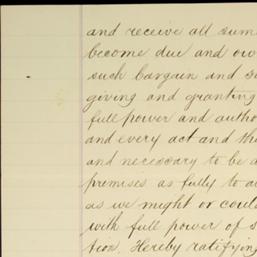 and receive all sum
become due and ow
such bargain and s
giving and granting
full power and autho
and every act and th
and necessary to be d
premises as fully to a
as we might or coul
with full power of s
tion. Hereby ratifying